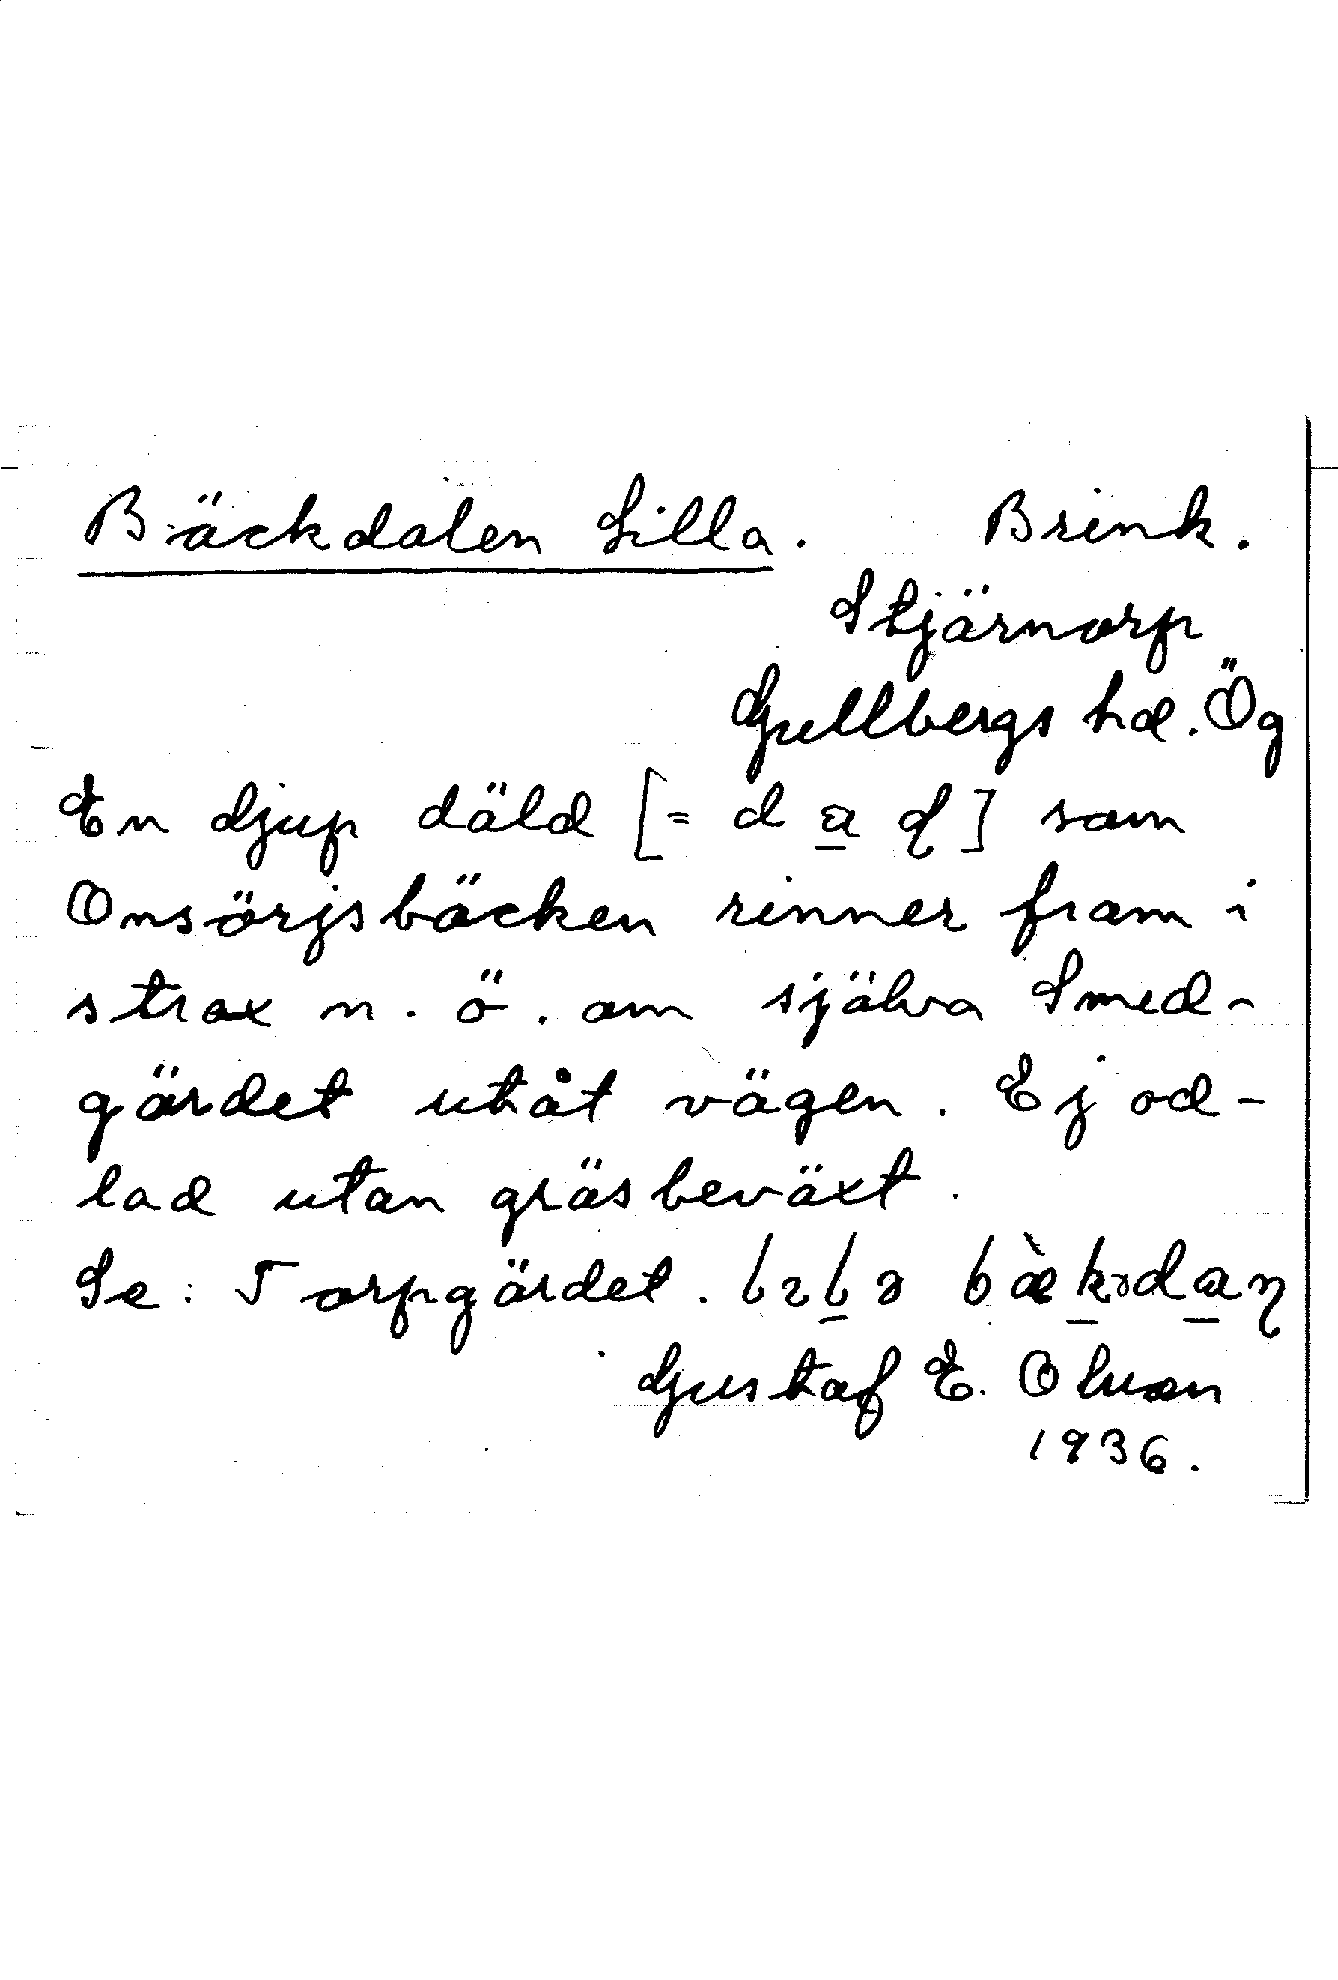 Bäckdalen Lilla. Brink.
Stjärnorp
Gullbergs hd. Ög
En djup däld [= d a ] som
Onsörjsbäcken rinner fram i
strax n. ö. om själva Smed-
gärdet utåt vägen. Ej od-
lad utan gräsbeväxt.
Se: Torpgärdet.
Gustaf E. Olsson
1936.